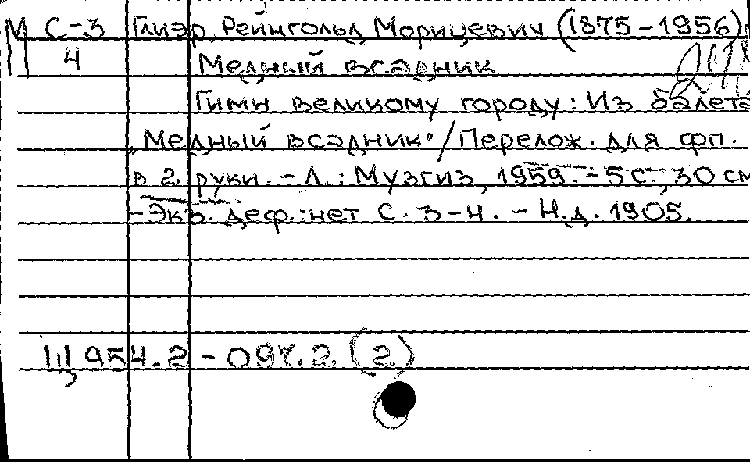 М С-3 Глиэр, Рейнгольд Морицевич (1875-1956)
4 Медный всадник
Гимн великому городу: Из балета
„Медный всадник"/Перелож. для фп.
в 2 руки. - Л.: Музгиз, 1959. - 5 с., 30 см
-Экз. деф.: нет С. 3-4. - Н.д. 1905.
Щ 954.2-09 .2 (2)